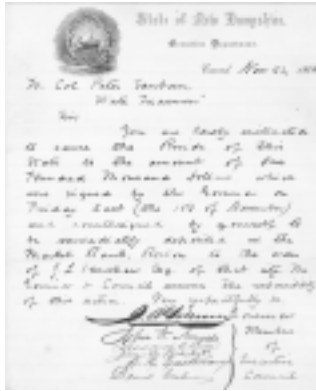 State of New Hampshire.
Executive Department.
Nov 22, 186
To Col Peter Sanborn
State Treasurer
Sir
You are hereby instructed
to issue the Bonds of this
State to the amount of five
Hundred Thousand dollars which
were signed by the Governor on
Friday last (the 18th of November)
and by you to
be immediately deposited in the
Bank, Boston to the order
of J. L. Esq of that city The
Governor & Council assume the responsibility
of this action. Very respectfully &c
Governor
Members
of
Executive
Council